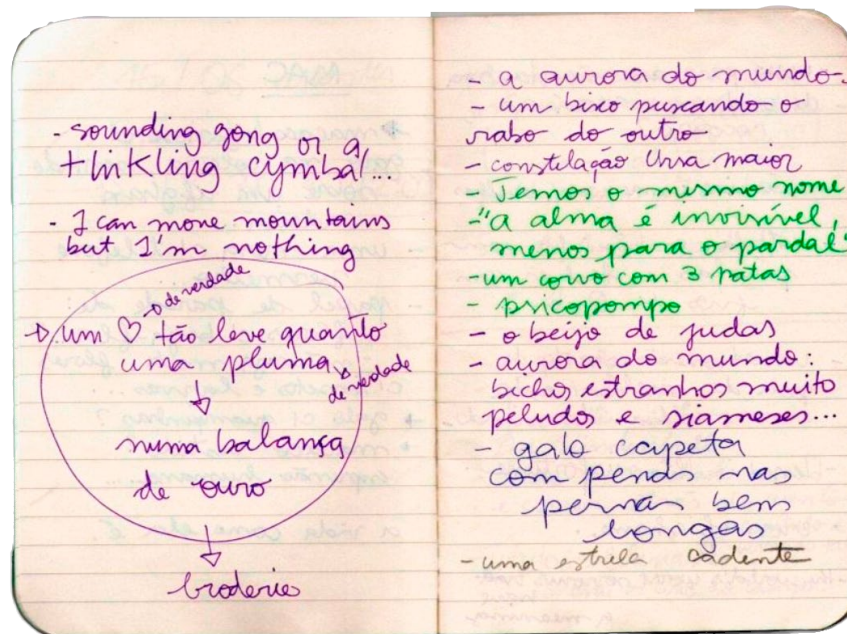 - sounding gong or a
thinkling cymbal...
- I can move mountains
but I'm nothing
→ um ♡ → o de verdade
tão leve quanto
uma pluma → de verdade
↓
numa balança
de ouro
↓
broderie
- a aurora do mundo.
- um bixo puxando o
rabo do outro
- constelação Ursa maior
- Temos o mesmo nome
- "a alma é invisível,
menos para o pardal"
- um corvo com 3 patas
- psicopompo
- o beijo de judas
- aurora do mundo:
bichos estranhos muito
peludos e siameses...
- galo capeta
com penas nas
pernas bem
longas
- uma estrela cadente